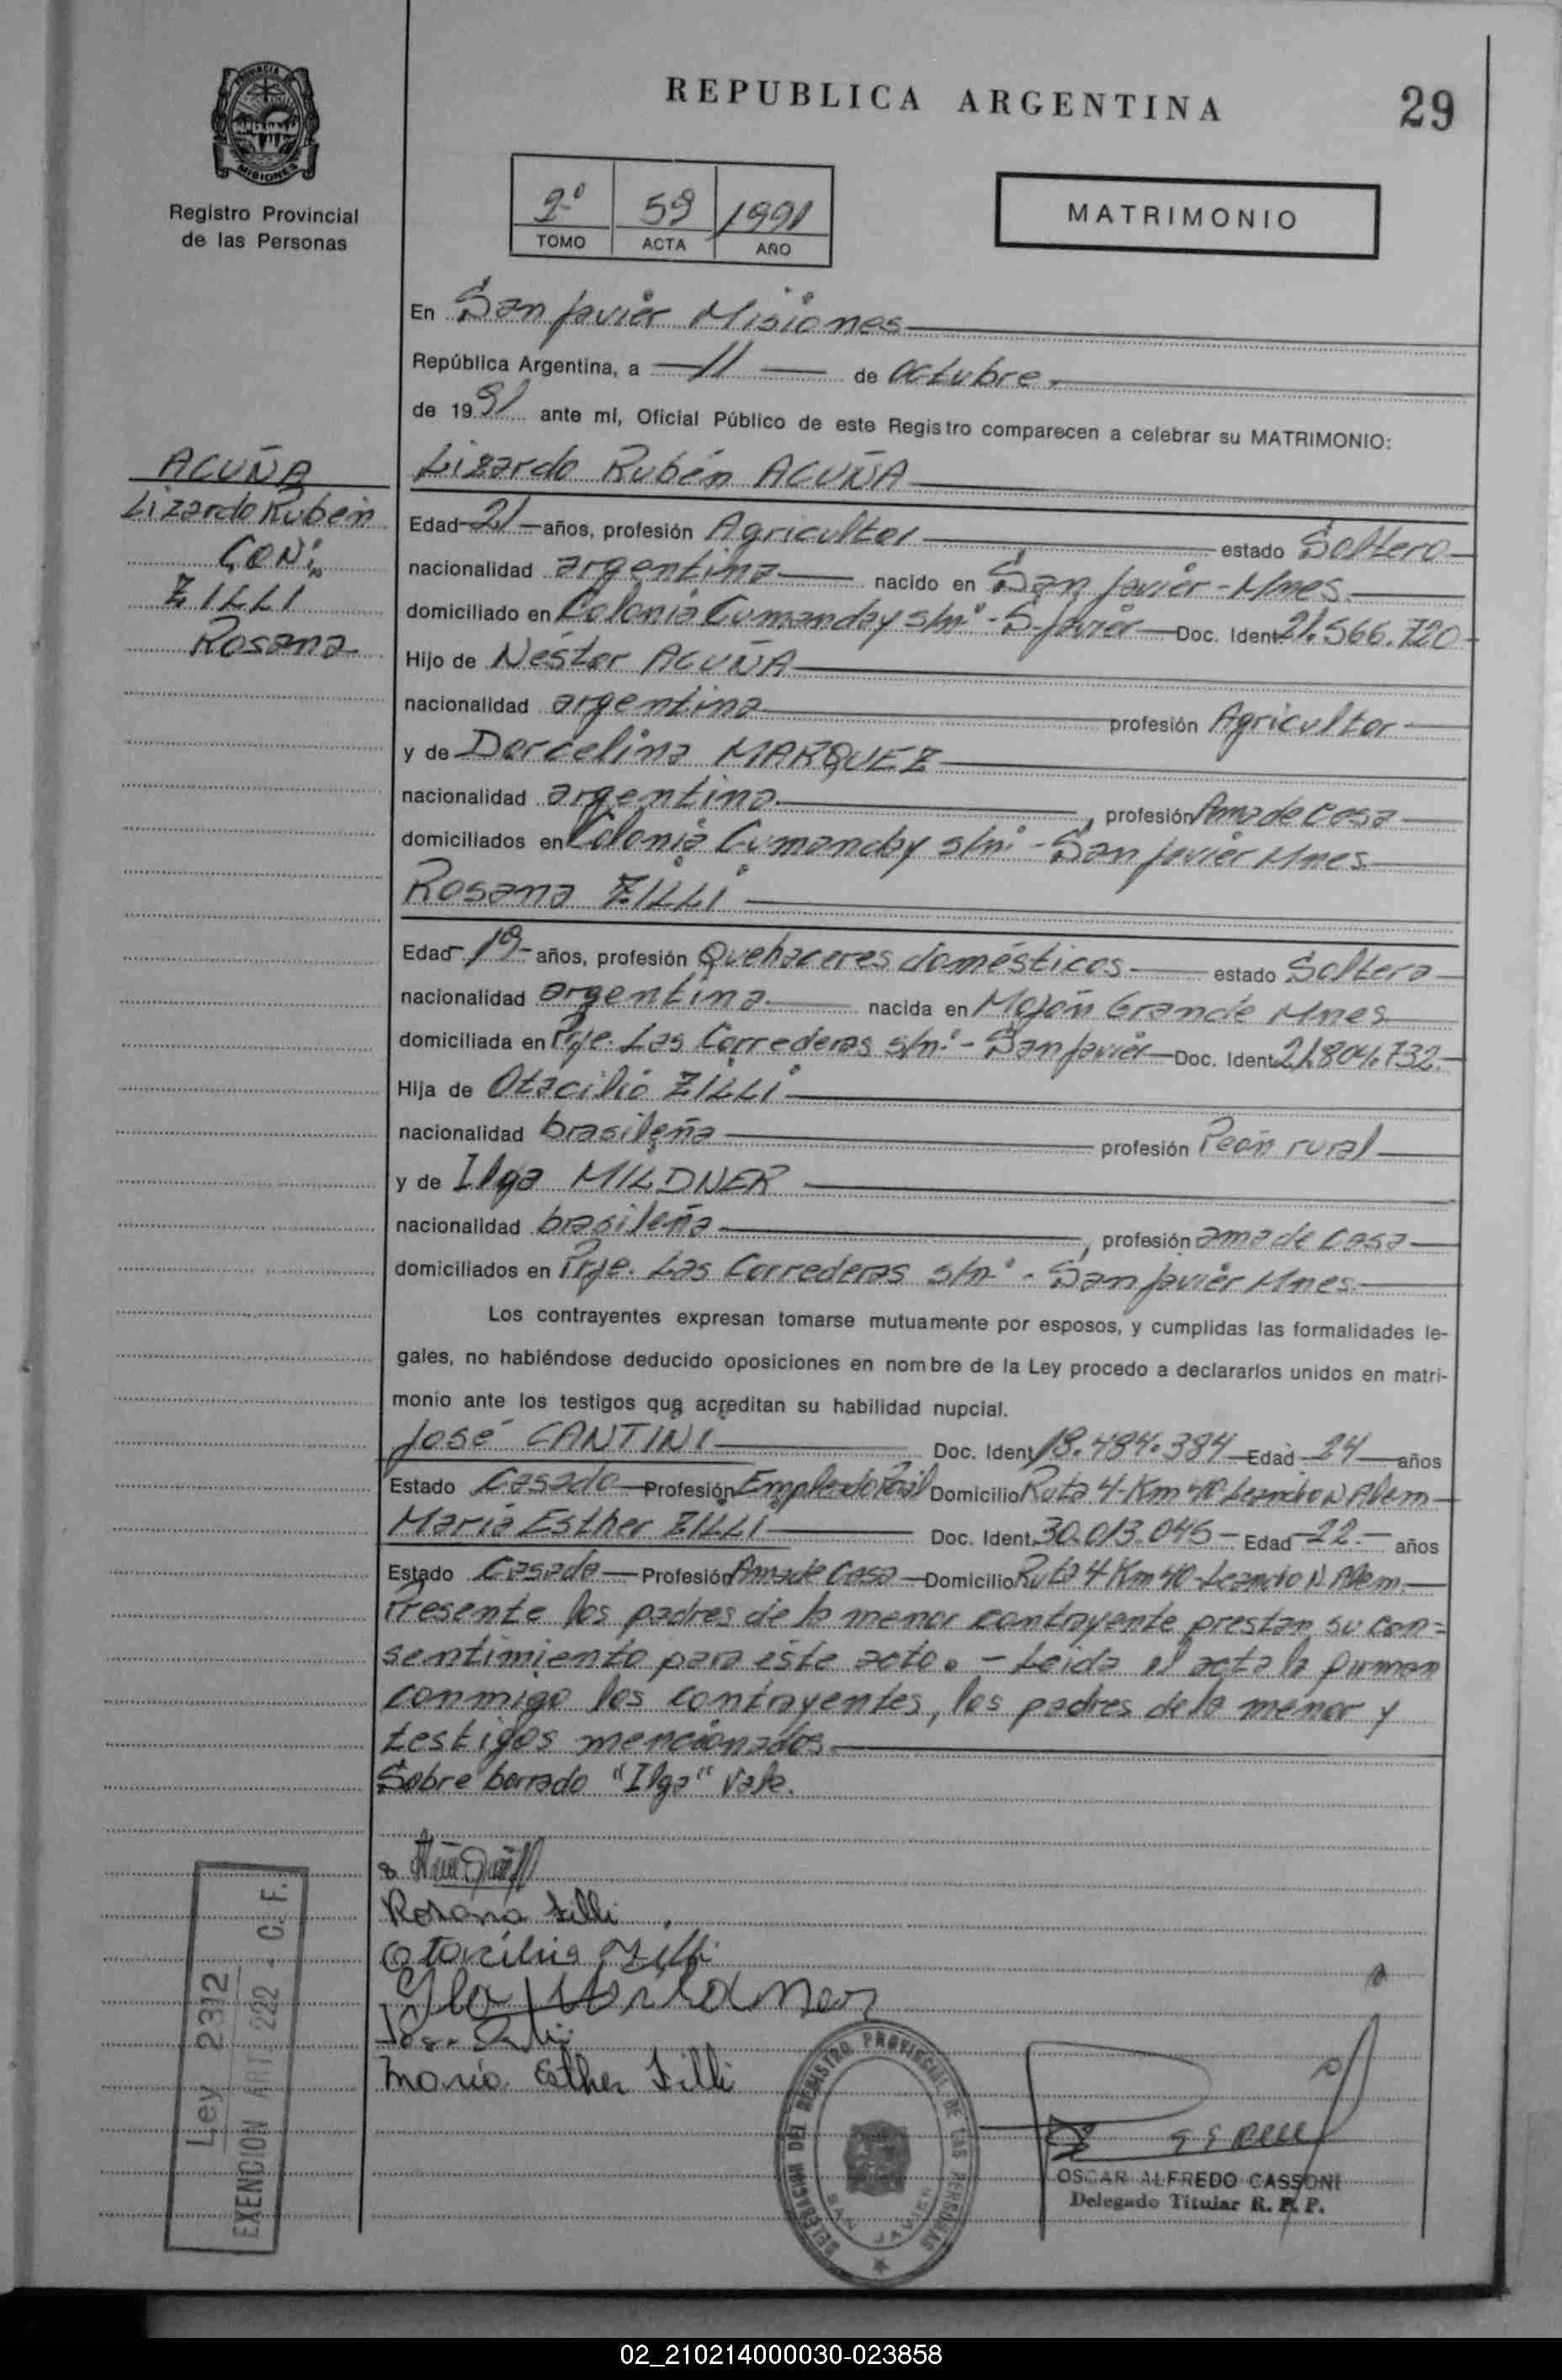 PROVINCIA DE
MISIONES
Registro Provincial
de las Personas
REPUBLICA ARGENTINA
29
2º 59 1991
TOMO ACTA AÑO
MATRIMONIO
En San Javier Misiones
República Argentina, a 11 de octubre
de 1991 ante mí, Oficial Público de este Registro comparecen a celebrar su MATRIMONIO:
ACUÑA
Lizardo Rubén
CON:
ZILLI
Rosana
Lizardo Rubén ACUÑA
Edad 21 años, profesión Agricultor estado Soltero
nacionalidad argentina nacido en San Javier - Mnes.
domiciliado en Colonia Cumanday s/nº - S. Javier Doc. Ident 21.566.720
Hijo de Néstor ACUÑA
nacionalidad argentina profesión Agricultor
y de Dorcelina MARQUEZ
nacionalidad argentina, profesión Ama de casa
domiciliados en Colonia Cumanday s/nº - San Javier Mnes.
Rosana ZILLI
Edad 19 años, profesión Quehaceres domésticos estado Soltera
nacionalidad argentina nacida en Mojón Grande Mnes
domiciliada en Pje. Las Correderas s/nº - San Javier Doc. Ident 21.804.732
Hija de Otacilio ZILLI
nacionalidad brasileña profesión Peón rural
y de Ilga MILDNER
nacionalidad brasileña, profesión ama de casa
domiciliados en Prje. Las Correderas s/nº - San Javier Mnes.
Los contrayentes expresan tomarse mutuamente por esposos, y cumplidas las formalidades le-
gales, no habiéndose deducido oposiciones en nombre de la Ley procedo a declararlos unidos en matri-
monio ante los testigos que acreditan su habilidad nupcial.
José CANTINI Doc. Ident 18.484.384 Edad 24 años
Estado Casado Profesión Domicilio Ruta 4 - Km 40 Leandro N Alem
María Esther ZILLI Doc. Ident. 30.013.045 Edad 22 años
Estado Casada Profesión Ama de Casa Domicilio Ruta 4 Km 40 - Leandro N. Alem
Presente los padres de la menor contrayente prestan su con=
sentimiento para éste acto. - Leida el acta la firman
conmigo los contrayentes, los padres de la menor y
testigos mencionados
Sobre borrado "Ilga" Vale.
Rosana Zilli
Otacilio Zilli
Maria Esther Zilli
Ley 2312
EXENCION ART 222 - C. F.
DELEGACION DEL REGISTRO PROVINCIAL DE LAS PERSONAS
SAN JAVIER
OSCAR ALFREDO CASSONI
Delegado Titular R. P. P.
02_210214000030-023858